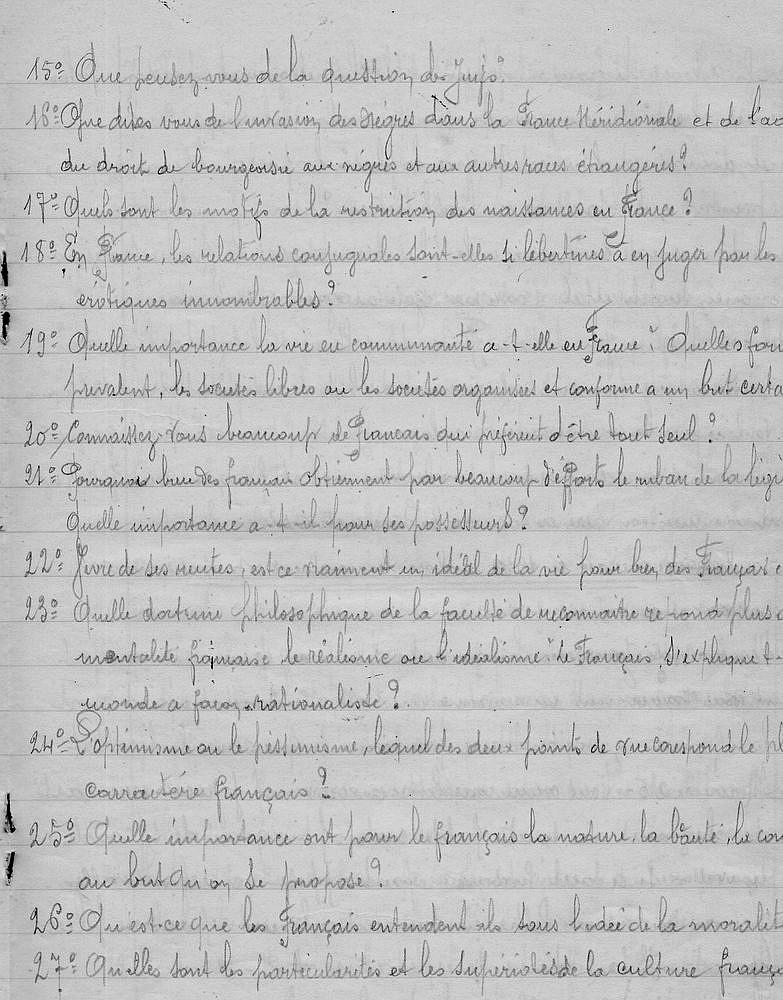 15º Que pensez-vous de la question des Juifs?
16º Que dites vous de l'invasion des Nègres dans la France Méridionale et de l'ac
du droit de bourgeoisie aux nègres et aux autres races étrangères?
17º Quels sont les motifs de la restriction des naissances en France?
18º En France, les relations conjuguales sont-elles si libertines à en juger par les
érotiques innombrables?
19º Quelle importance la vie en communauté a-t-elle en France? Quelles for
prévalent, les sociétés libres ou les sociétés organisées et conforme a un but certa
20º Connaissez-vous beaucoup de français qui préfèrent d'être tout seul?
21º Pourquoi bien des français obtiennent par beaucoup d'efforts le ruban de la légi
Quelle importance a-t-il pour ses possesseurs?
22º Vivre de ses rentes, est ce vraiment un idéal de la vie pour bien des Français
23º Quelle doctrine philosophique de la faculté de reconnaitre repond plus
mentalité française le réalisme ou l'idéalisme? Le Français s'explique t-
monde a façon rationaliste?
24º L'optimisme ou le péssimisme, lequel des deux points de vue corespond le pl
carractére français?
25º Quelle importance ont pour le français la nature, la bauté, la con
ou but qu'on se propose?
26º Qu'est-ce que les Français entendent ils sous l'idée de la moralit
27º Quelles sont les particularités et les supériotés de la culture frança